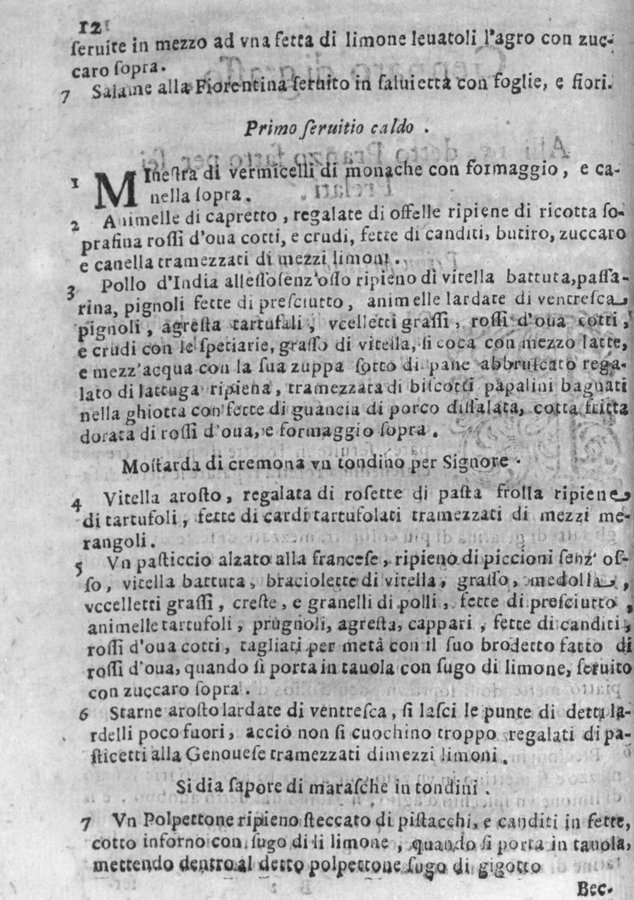 12
ſeruite in mezzo ad vna fetta di limone leuatoli l'agro con zuc-
caro ſopra.
7 Salame alla Fiorentina ſeruito in ſaluietta con foglie, e fiori.
Primo ſeruitio caldo .
1 MIneſtra di vermicelli di monache con formaggio, e ca-
nella ſopra.
2 Animelle di capretto, regalate di offelle ripiene di ricotta ſo-
prafina roſſi d'oua cotti, e crudi, fette di canditi, butiro, zuccaro
e canella tramezzati di mezzi limoni.
3 Pollo d'India alleſſo ſenz'oſſo ripieno di vitella battuta, paſſa-
rina, pignoli fette di preſciutto, animelle lardate di ventreſca
pignoli, agreſta tartufali, vcelletti graſſi, roſſi d'oua cotti,
e crudi con le ſpetiarie, graſſo di vitella, ſi coca con mezzo latte,
e mezz'acqua con la ſua zuppa ſotto di pane abbruſcato rega-
lato di lattuga ripiena, tramezzata di biſcotti papalini bagnati
nella ghiotta con fette di guancia di porco diſſalata, cotta fritta
dorata di roſſi d'oua, e formaggio ſopra.
Moſtarda di cremona vn tondino per Signore.
4 Vitella aroſto, regalata di roſette di paſta frolla ripiene
di tartufoli, fette di cardi tartufolati tramezzati di mezzi me-
rangoli.
5 Vn paſticcio alzato alla franceſe, ripieno di piccioni ſenz' oſ-
ſo, vitella battuta, braciolette di vitella, graſſo, medolla,
vccelletti graſſi, creſte, e granelli di polli, fette di preſciutto,
animelle tartufoli, prugnoli, agreſta, cappari, fette di canditi,
roſſi d'oua cotti, tagliati per metà con il ſuo brodetto fatto di
roſſi d'oua, quando ſi porta in tauola con ſugo di limone, ſeruito
con zuccaro ſopra.
6 Starne aroſto lardate di ventreſca, ſi laſci le punte di detti la-
rdelli poco fuori, acciò non ſi cuochino troppo regalati di pa-
ſticetti alla Genoueſe tramezzati di mezzi limoni.
Si dia ſapore di maraſche in tondini.
7 Vn Polpettone ripieno ſteccato di piſtacchi, e canditi in fette,
cotto inforno con ſugo di li limone, quando ſi porta in tauola,
mettendo dentro al detto polpettone ſugo di gigotto
Bec.